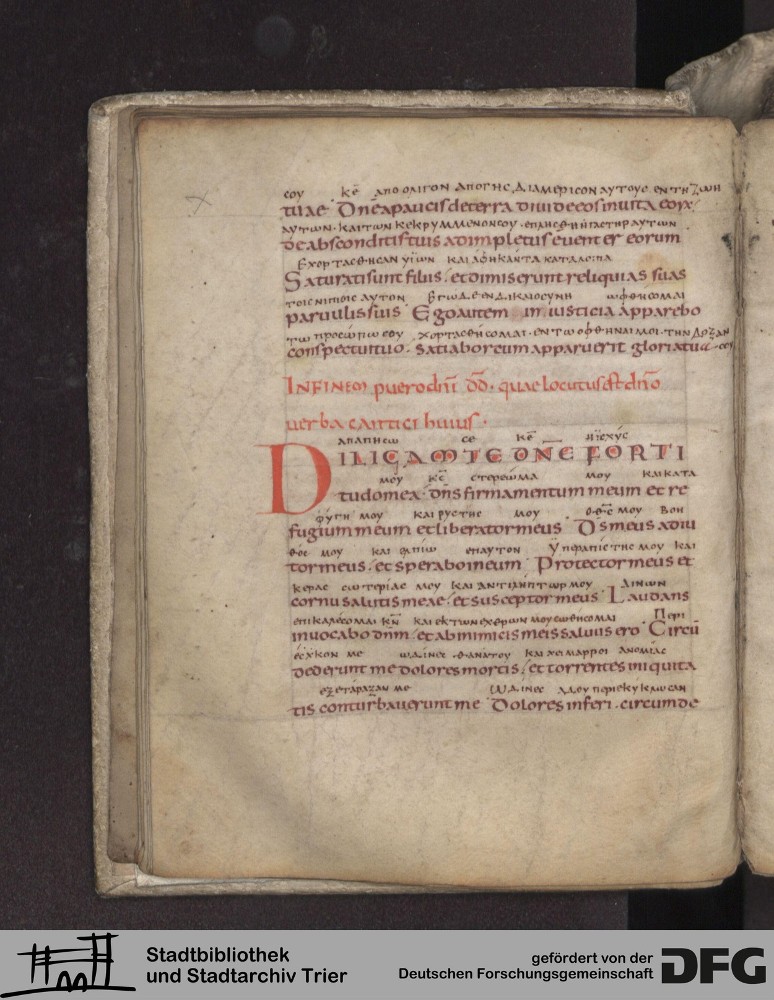 σου κε απο ολιγον απο γης διαμερισον αυτους εν τη ζωη
tuae · Dne a paucis de terra diuide eos in uita eorum
αυτων · και των κεκρυμμενον σου · επλησθη η γαστηρ αυτων
de absconditis tuis adimpletus e uenter eorum
Εχορτασθησαν υιων και αφηκαν τα καταλοιπα
Saturati sunt filiis · et dimiserunt reliquias suas
τοις νιπιοις αυτον Εγω δε εν δικαιοσυνη οφθησομαι
paruulis suis · Ego autem in iusticia apparebo
τω προσωπω σου χορτασθησομαι · εν τω οφθηναι μοι · την δοξαν σου
conspectu tuo · satiabor cum apparuerit gloria tua
INFINEM puero dni dd · quae locutus est dno
uerba cantici huius ·
αγαπησω σε κε η ισχυς
DILIGAM TE DNE FORTI
μου κς στερεωμα μου και κατα
tudo mea · dns firmamentum meum et re
φυγη μου και ρυστης μου ο θς μου βοη
fugium meum et liberator meus · Ds meus adiu
θος μου και ελπιω επ αυτον Υπεραπιστης μου και
tor meus · et sperabo in eum · Protector meus et
κερας σωτεριας μου και αντιλημπτωρ μου Αινων
cornu salutis meae · et susceptor meus · Laudans
επικαλεσομαι κν και εκ των εχθρων μου σωθησομαι Περι
inuocabo dnm · et ab inimicis meis saluus ero · Circu
εσχον με ωδινες θανατου και χειμαρροι ανομιας
dederunt me dolores mortis · et torrentes iniquita
εξεταραξαν με Ωδινες αδου περιεκυκλωσαν
tis conturbauerunt me · Dolores inferi · circumde
Stadtbibliothek
und Stadtarchiv Trier
gefördert von der
Deutschen Forschungsgemeinschaft
DFG